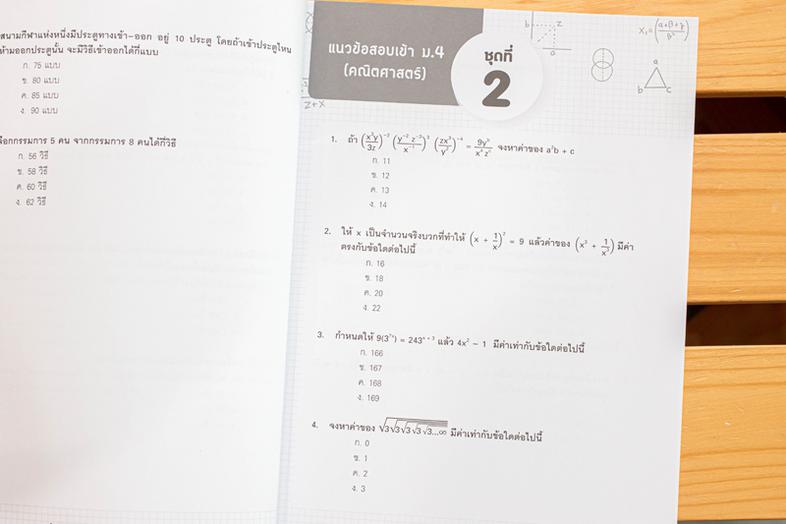 สนามกีฬาแห่งหนึ่งมีประตูทางเข้า-ออก อยู่ 10 ประตู โดยถ้าเข้าประตูไหน
ห้ามออกประตูนั้น จะมีวิธีเข้าออกได้กี่แบบ
ก. 75 แบบ
ข. 80 แบบ
ค. 85 แบบ
ง. 90 แบบ
กรรมการ 5 คน จากกรรมการ 8 คนได้กี่วิธี
ก. 56 วิธี
ข. 58 วิธี
ค. 60 วิธี
ง. 62 วิธี
แนวข้อสอบเข้า ม.4
(คณิตศาสตร์)
ชุดที่
2
b z
a
X₁ = ((α+β+γ)/β²)
a
b c
z+x
1. ถ้า (x³y/3z)⁻² (y⁻² z⁻³/x⁻¹)³ (zx³/y²)⁻⁴ = 9yᵇ/xᵃzᶜ จงหาค่าของ a²b + c
ก. 11
ข. 12
ค. 13
ง. 14
2. ให้ x เป็นจำนวนจริงบวกที่ทำให้ (x + 1/x)² = 9 แล้วค่าของ (x³ + 1/x³) มีค่า
ตรงกับข้อใดต่อไปนี้
ก. 16
ข. 18
ค. 20
ง. 22
3. กำหนดให้ 9(3⁷ˣ) = 243ˣ⁺³ แล้ว 4x² - 1 มีค่าเท่ากับข้อใดต่อไปนี้
ก. 166
ข. 167
ค. 168
ง. 169
4. จงหาค่าของ √3√3√3√3√3...∞ มีค่าเท่ากับข้อใดต่อไปนี้
ก. 0
ข. 1
ค. 2
ง. 3